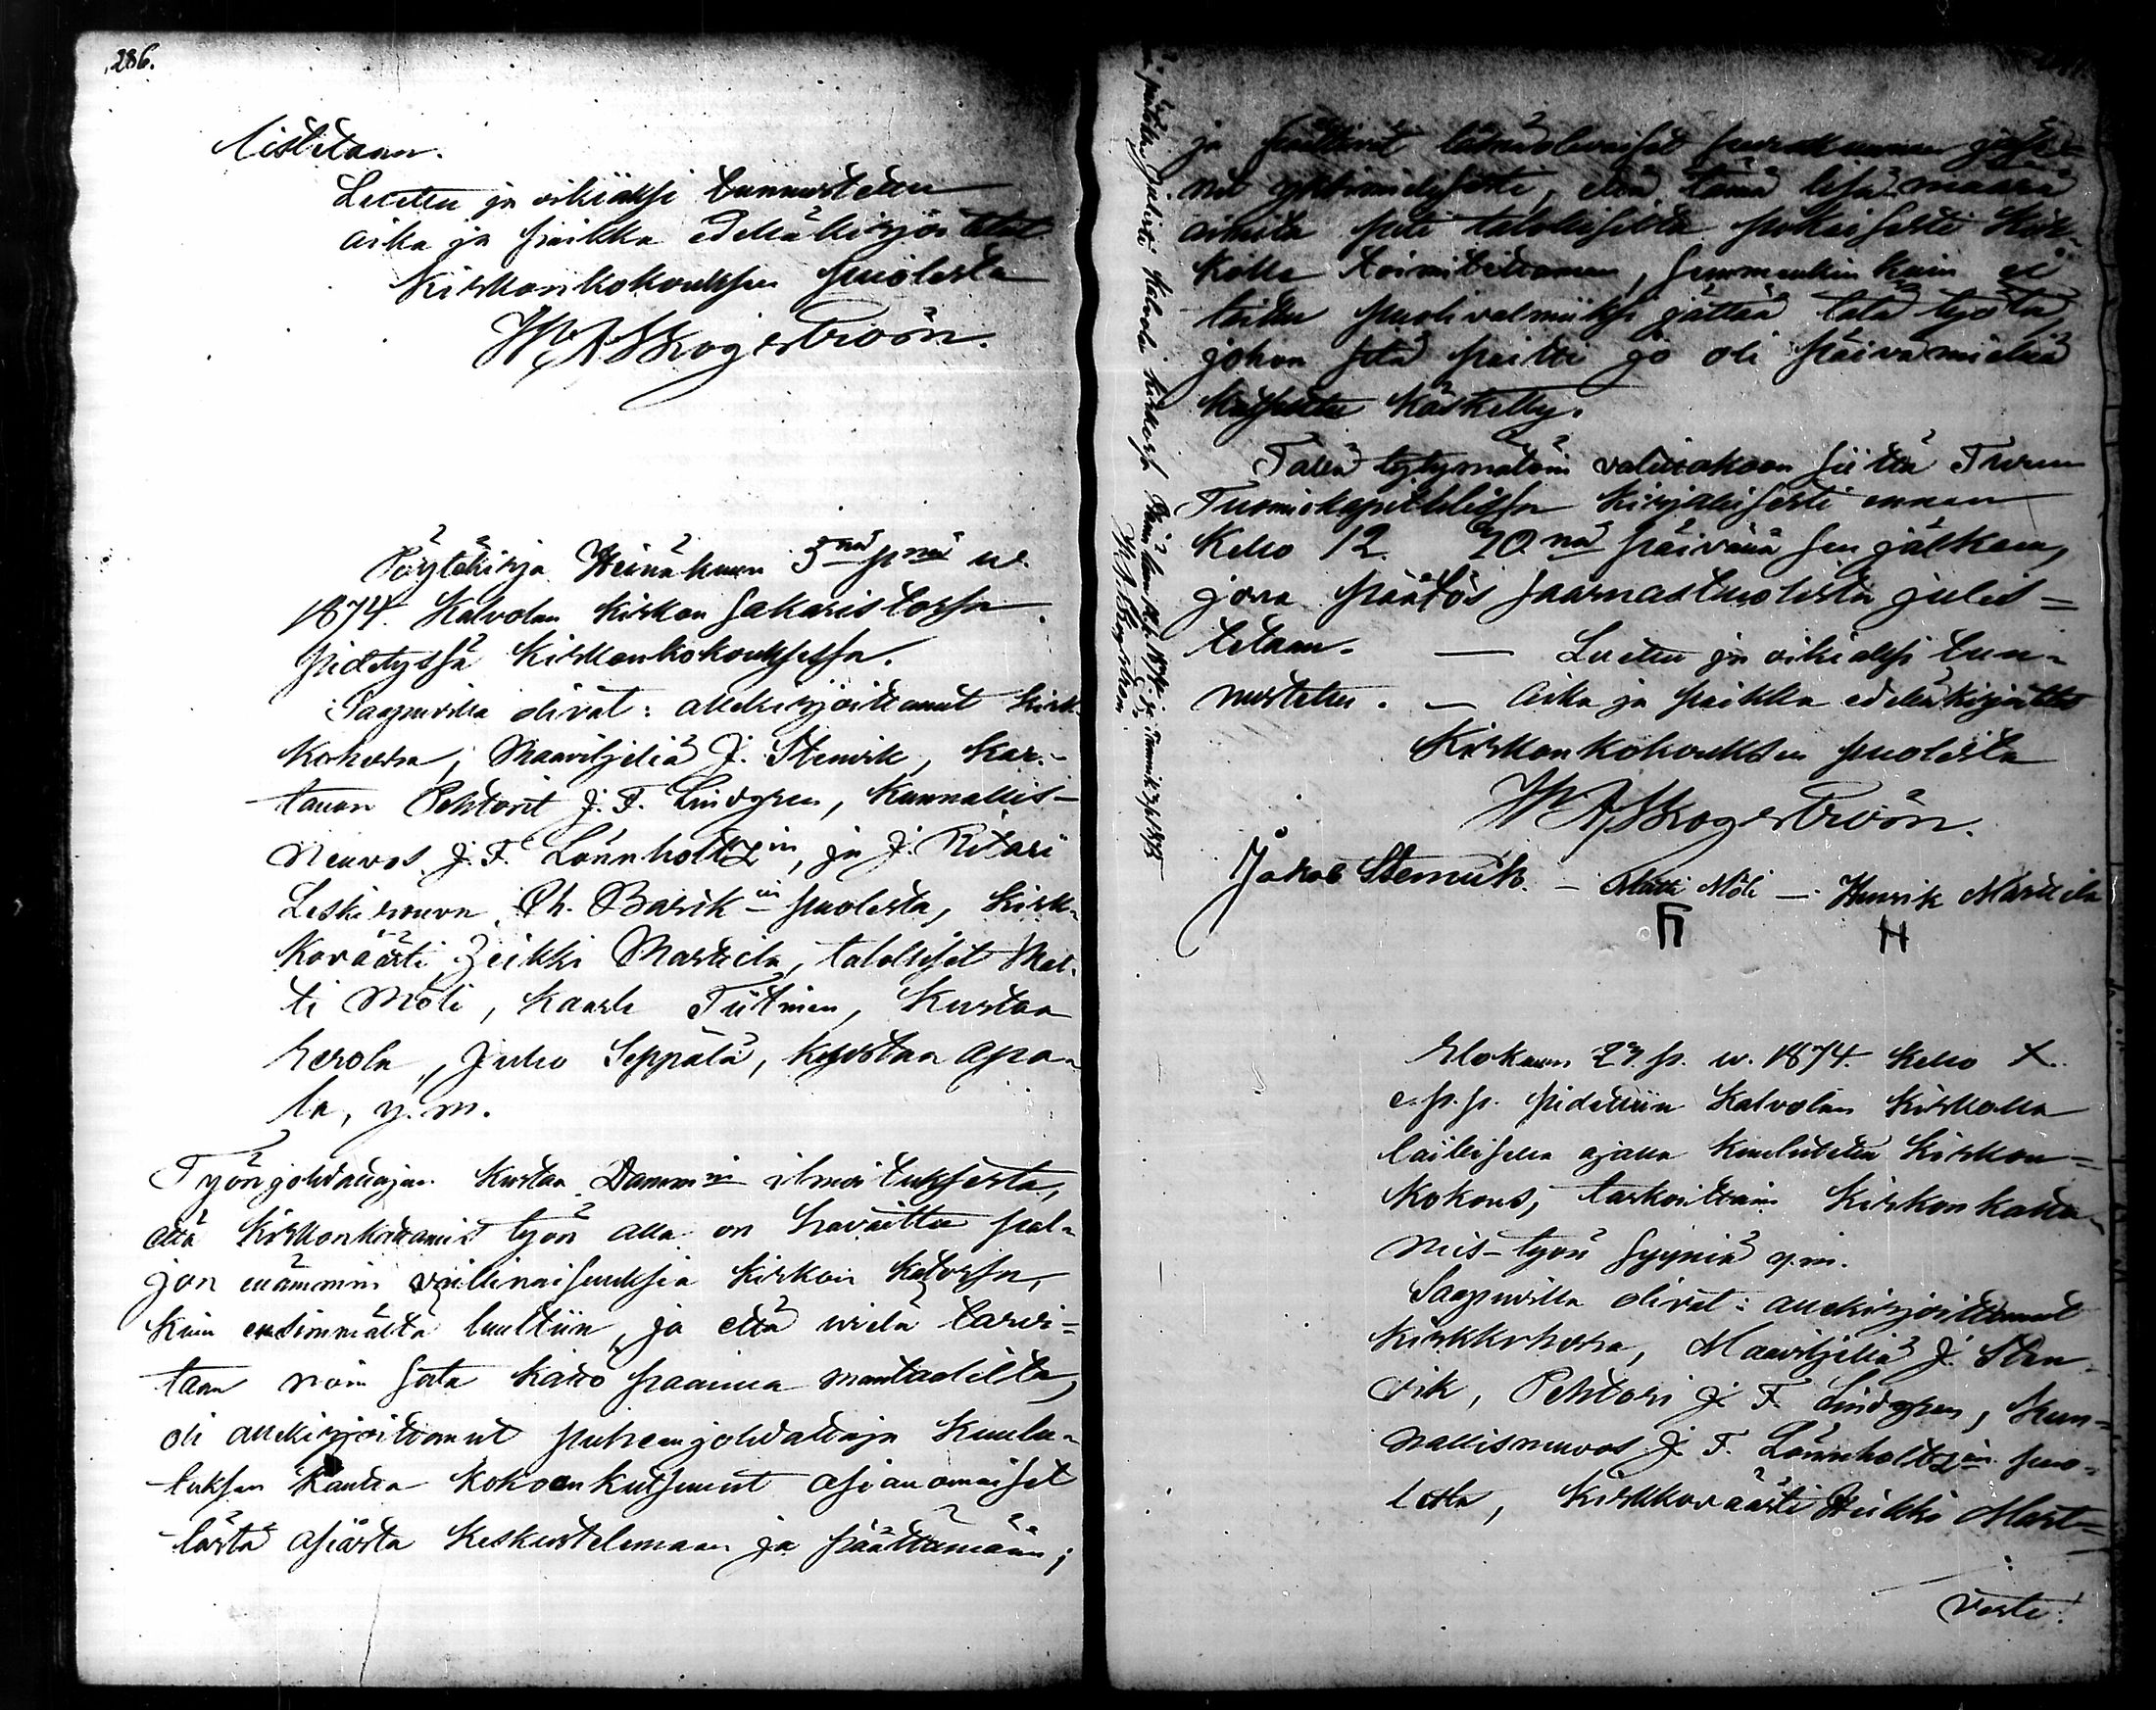 286.
listetaan.
Luettu ja oikiaksi tunnustettu
aika ja paikka edelläkirjoitetut
Kirkonkokouksen puolesta
W. A. Skogström.
Pöytäkirja Heinäkuun 5nä pnä w.
1874. Kalvolan Kirkon sakaristossa
pidetyssä Kirkonkokouksessa.
Saapuvilla olivat: allekirjoittanut Kirk-
koherra, Maaviljeliä J. Stenvik, Kar-
tanon Pehtorit J. F. Lindgren, Kunnallis-
Neuvos J. F. Lönnholtzin, ja J. Ritari
Leskirouva Ch. Barck-in puolesta, Kirk-
koväärti Heikki Marttila, talolliset Mat-
ti Möli, Kaarle Tiitinen, Kustaa
Kerola, Juho Seppälä, Kustaa Apa-
la, y. m.
Työnjohdattajan Kustaa Dammin ilmoituksesta,
että Kirkonkattamis työn alla on havaittu pal-
jon enämmin vaillinaisuuksia Kirkon Katossa,
kuin ensimmältä luultiin, ja että vielä tarvi-
taan noin sata kahdo paanua
oli allekirjoittanut puheenjohdattaja Kuulu-
tuksen kautta kokoonkutsunut asianomaiset
tästä asiasta keskustelemaan ja päättämään;
ja päättivät läsnäolevaiset seurakunnan jäse-
net yksimielisesti, että tämä lisä määrä
aineita piti talollisilta Kir-
kolle toimitettaman, summankin kuin ei
taittu puolivalmiiksi jättää tätä työtä,
johon sitä paitsi jo oli päivämiehiä
käsketty.
Tähän tytymätöin valittakoon siitä Turun
Tuomiokapitelissa Kirjallisesti ennen
Kello 12. 30nä päivänä sen jälkeen,
jona päätös saarnastuolista julis-
tetaan. — Luettu ja oikiaksi tun-
nustettu. — Aika ja paikka edelläkirjoitetut
Kirkonkokouksen puolesta
W. A. Skogström.
Jakob Stenvik. — Matti Möli — Henrik Marttila
Elokuun 27. p. w. 1874. Kello X.
e. p. p. pidettiin Kalvolan Kirkolla
laillisella ajalla Kuulutettu Kirkon-
kokous, tarkoittain Kirkon katta-
mis-työn syyniä y. m.
Saapuvilla olivat: allekirjoittanut
Kirkkoherra, Maaviljeliä J. Sten-
vik, Pehtori J. F. Lindgren, Kun-
nallisneuvos J. F. Lönnholtzin puo-
lesta, Kirkkoväärti Heikki Mart-